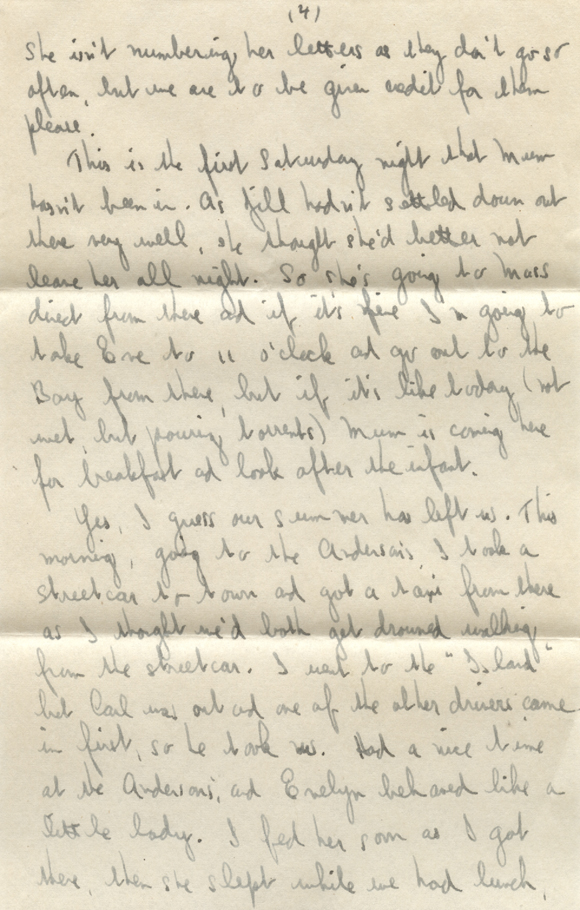 (4)
She isn't numbering her letters as they don't go so
often, but we are to be given credit for them
please.
This is the first Saturday night that Mum
hasn't been in. As Jill hadn't settled down out
there very well, she thought she'd better not
leave her all night. So she's going to Mass
direct from there ad if it's fine I'm going to
take Eve to 11 o'clock ad go out to the
Bay from there, but if it's like today (not
wet, but pouring torrents) Mum is coming here
for breakfast ad look after the infant.
Yes, I guess our summer has left us. This
morning, going to the Andersons, I took a
streetcar to town ad got a taxi from there
as I thought we'd both get drowned walking
from the streetcar. I went to the "Island"
but Carl was out ad one of the other drivers came
in first, so he took us. Had a nice time
at the Andersons, ad Evelyn behaved like a
little lady. I fed her soon as I got
there, then she slept while we had lunch,